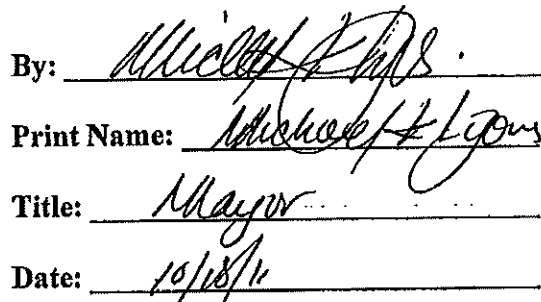 By:
Print Name: Michael K Lyons
Title: Mayor
Date: 10/18/11